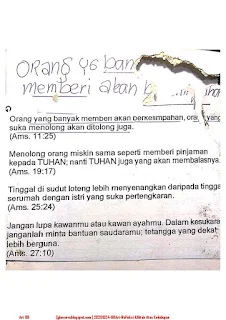 ORANG yg ban
memberi akan b
Orang yang banyak memberi akan berkelimpahan, ora yang
suka menolong akan ditolong juga.
(Ams. 11:25)
Menolong orang miskin sama seperti memberi pinjaman
kepada TUHAN; nanti TUHAN juga yang akan membalasnya.
(Ams. 19:17)
Tinggal di sudut loteng lebih menyenangkan daripada tingga
serumah dengan istri yang suka pertengkaran.
(Ams. 25:24)
Jangan lupa kawanmu atau kawan ayahmu. Dalam kesukara
janganlah minta bantuan saudaramu; tetangga yang dekat
lebih berguna.
(Ams. 27:10)